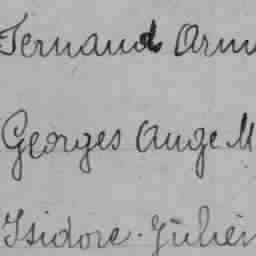 Fernand Arm
Georges Ange M
Isidore Julien